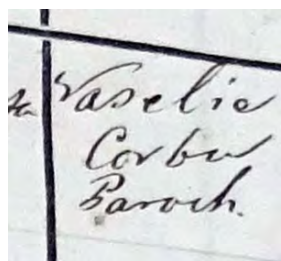 Vaselie
Corbu
Paroch.